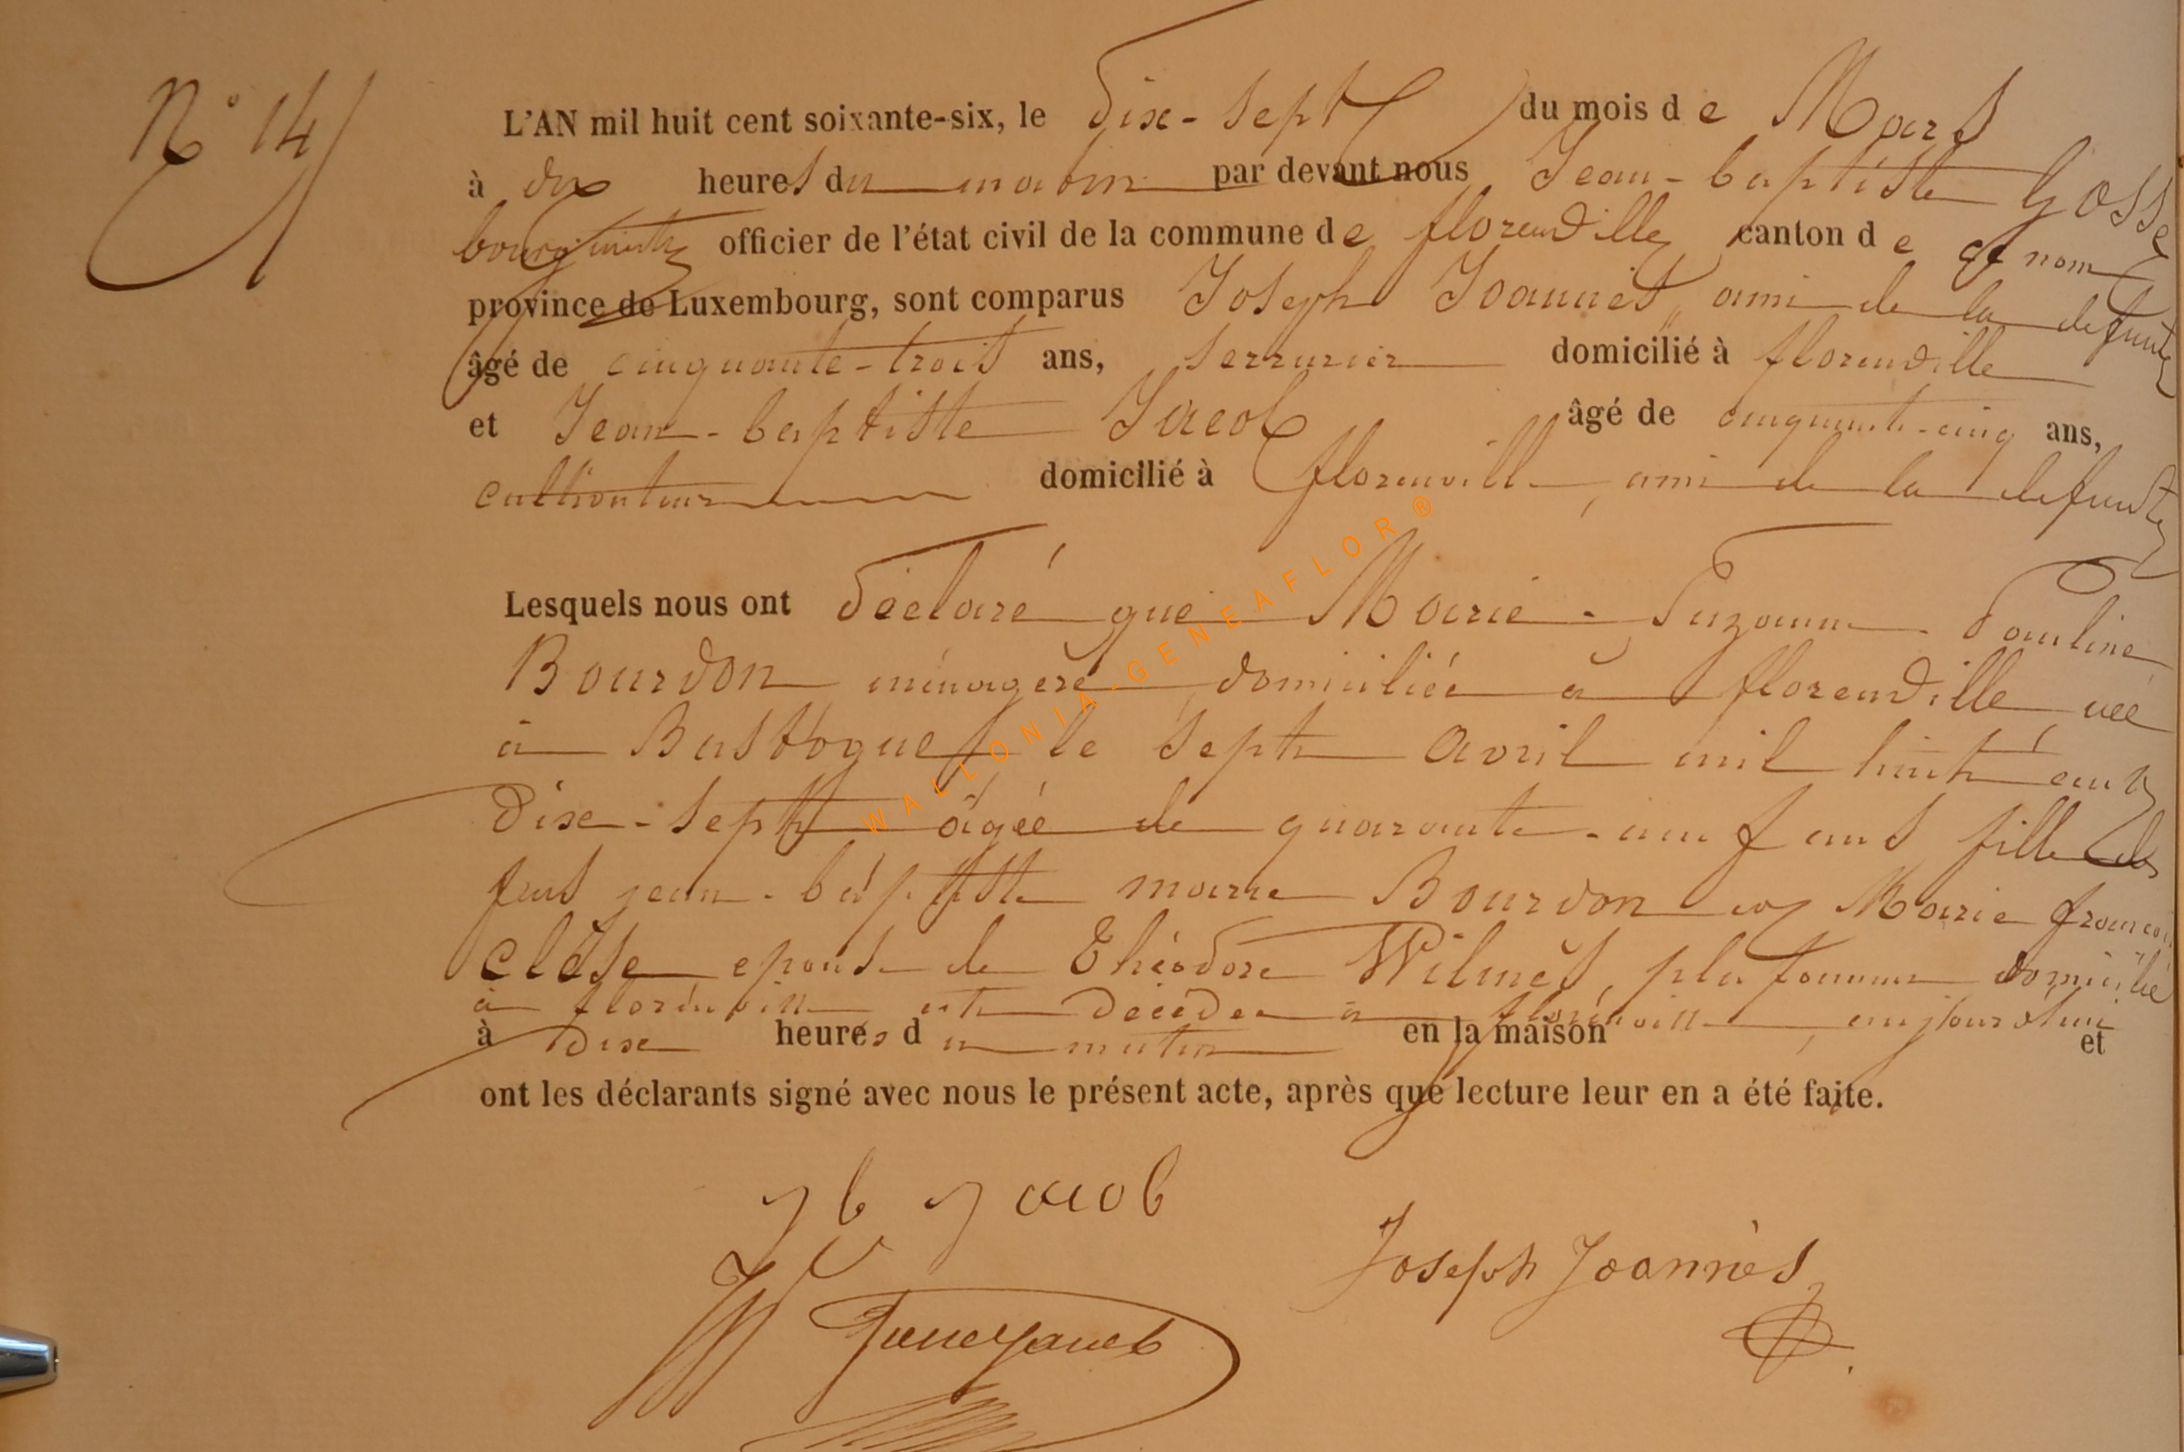 N° 14
L'AN mil huit cent soixante-six, le dix-sept du mois de Mars
à dix heures du matin par devant nous Jean-baptiste Gosse
bourgmestre officier de l'état civil de la commune de florenville canton de ce nom
province de Luxembourg, sont comparus Joseph Joannès, ami de la defunte
âgé de cinquante-trois ans, serrurier domicilié à florenville
et Jean-baptiste Jacob âgé de cinquante-cinq ans,
cultivateur domicilié à florenville, ami de la defunte
Lesquels nous ont déclaré que Marie-Suzanne Pauline
Bourdon ménagère domiciliée à florenville née
à Bastogne le sept avril mil huit cent
dix-sept âgée de quarante-neuf ans fille des
feus jean-baptiste marie Bourdon et Marie
epouse de Théodore Wilmès, domicilié
à florenville est décédée à florenville, aujourd'hui
à dix heures du matin en la maison et
ont les déclarants signé avec nous le présent acte, après que lecture leur en a été faite.
j b jacob
Joseph Joannès
WALLONIA-GENEAFLOR®